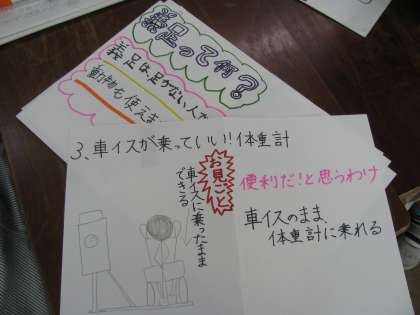 義足って何?
義足は、足がない人
動物も使えま
3、車イスが乗っていい!!体重計
お見ごと
車イスに乗ったまま
できる
便利だ!と思うわけ
車イスのまま、
体重計に乗れる